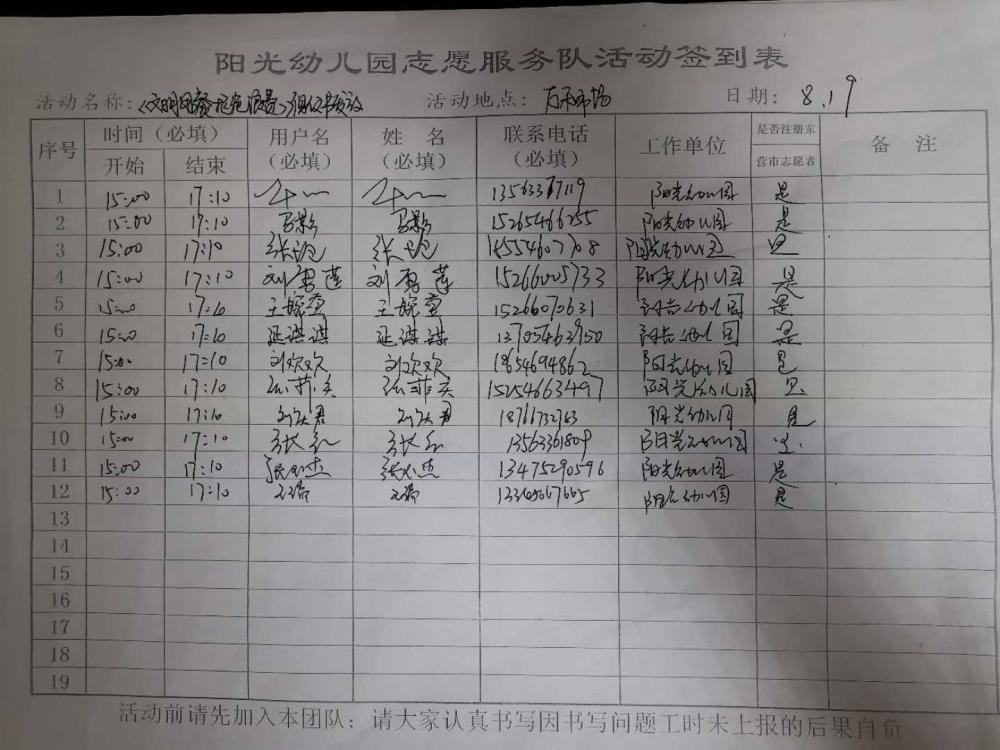 阳光幼儿园志愿服务队活动签到表
活动名称: 活动地点: 市场 日期: 8.19
序号 时间(必填) 用户名(必填) 姓 名(必填) 联系电话(必填) 工作单位 是否注册东营市志愿者 备 注
开始 结束
1 15:00 17:10 阳光幼儿园 是
2 15:00 17:10 15265466255 阳光幼儿园 是
3 15:00 17:10 阳光幼儿园 是
4 15:00 17:10 刘 莲 刘 莲 15266005733 阳光幼儿园 是
5 15:00 17:10 王婉莹 王婉莹 15266070631 阳光幼儿园 是
6 15:00 17:10 延琪琪 延琪琪 13705463950 阳光幼儿园 是
7 15:00 17:10 刘欢欢 刘欢欢 18654694862 阳光幼儿园 是
8 15:00 17:10 15254663497 阳光幼儿园 是
9 15:00 17:10 18766732763 阳光幼儿园 是
10 15:00 17:10 张 张 13563361809 阳光幼儿园 是
11 15:00 17:10 13475290596 阳光幼儿园 是
12 15:00 17:10 阳光幼儿园 是
13
14
15
16
17
18
19
活动前请先加入本团队:请大家认真书写因书写问题工时未上报的后果自负